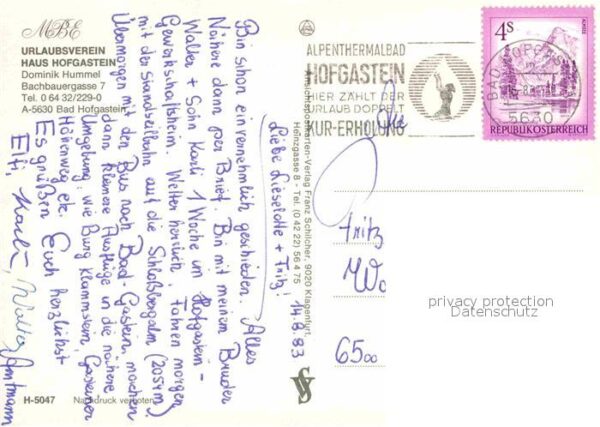 MBE
URLAUBSVEREIN
HAUS HOFGASTEIN
Dominik Hummel
Bachbauergasse 7
Tel. 0 64 32/229-0
A-5630 Bad Hofgastein
H-5047 Nachdruck verboten
14.8.83
Liebe Lieselotte + Fritz!
Bin schon einvernehmlich geschieden. Alles
Nähere dann per Brief. Bin mit meinem Bruder
Walter + Sohn Karli 1 Woche im Hofgastein-
Gewerkschaftsheim. Wetter herrlich. Fahren morgen
mit der Standseilbahn auf die Schloßbergalm (2050m)
Übermorgen mit den Bus nach Bad-Gastein, machen
dann kleinere Ausflüge in die nähere
Umgebung, wie Burg Klammstein, Gasteiner
Höhenweg etc.
Es grüßen Euch herzlichst
Elfi, Karli, Walter
Amtmann
Ansichtskarten-Verlag Franz Schilcher, 9020 Klagenfurt,
Heinzgasse 8 - Tel. (0 42 22) 56 4 75
ALPENTHERMALBAD
HOFGASTEIN
HIER ZÄHLT DER
URLAUB DOPPELT
KUR-ERHOLUNG
BAD HOFGASTEIN
5630
4S
REPUBLIK ÖSTERREICH
Fritz
Wo
6500
privacy protection
Datenschutz